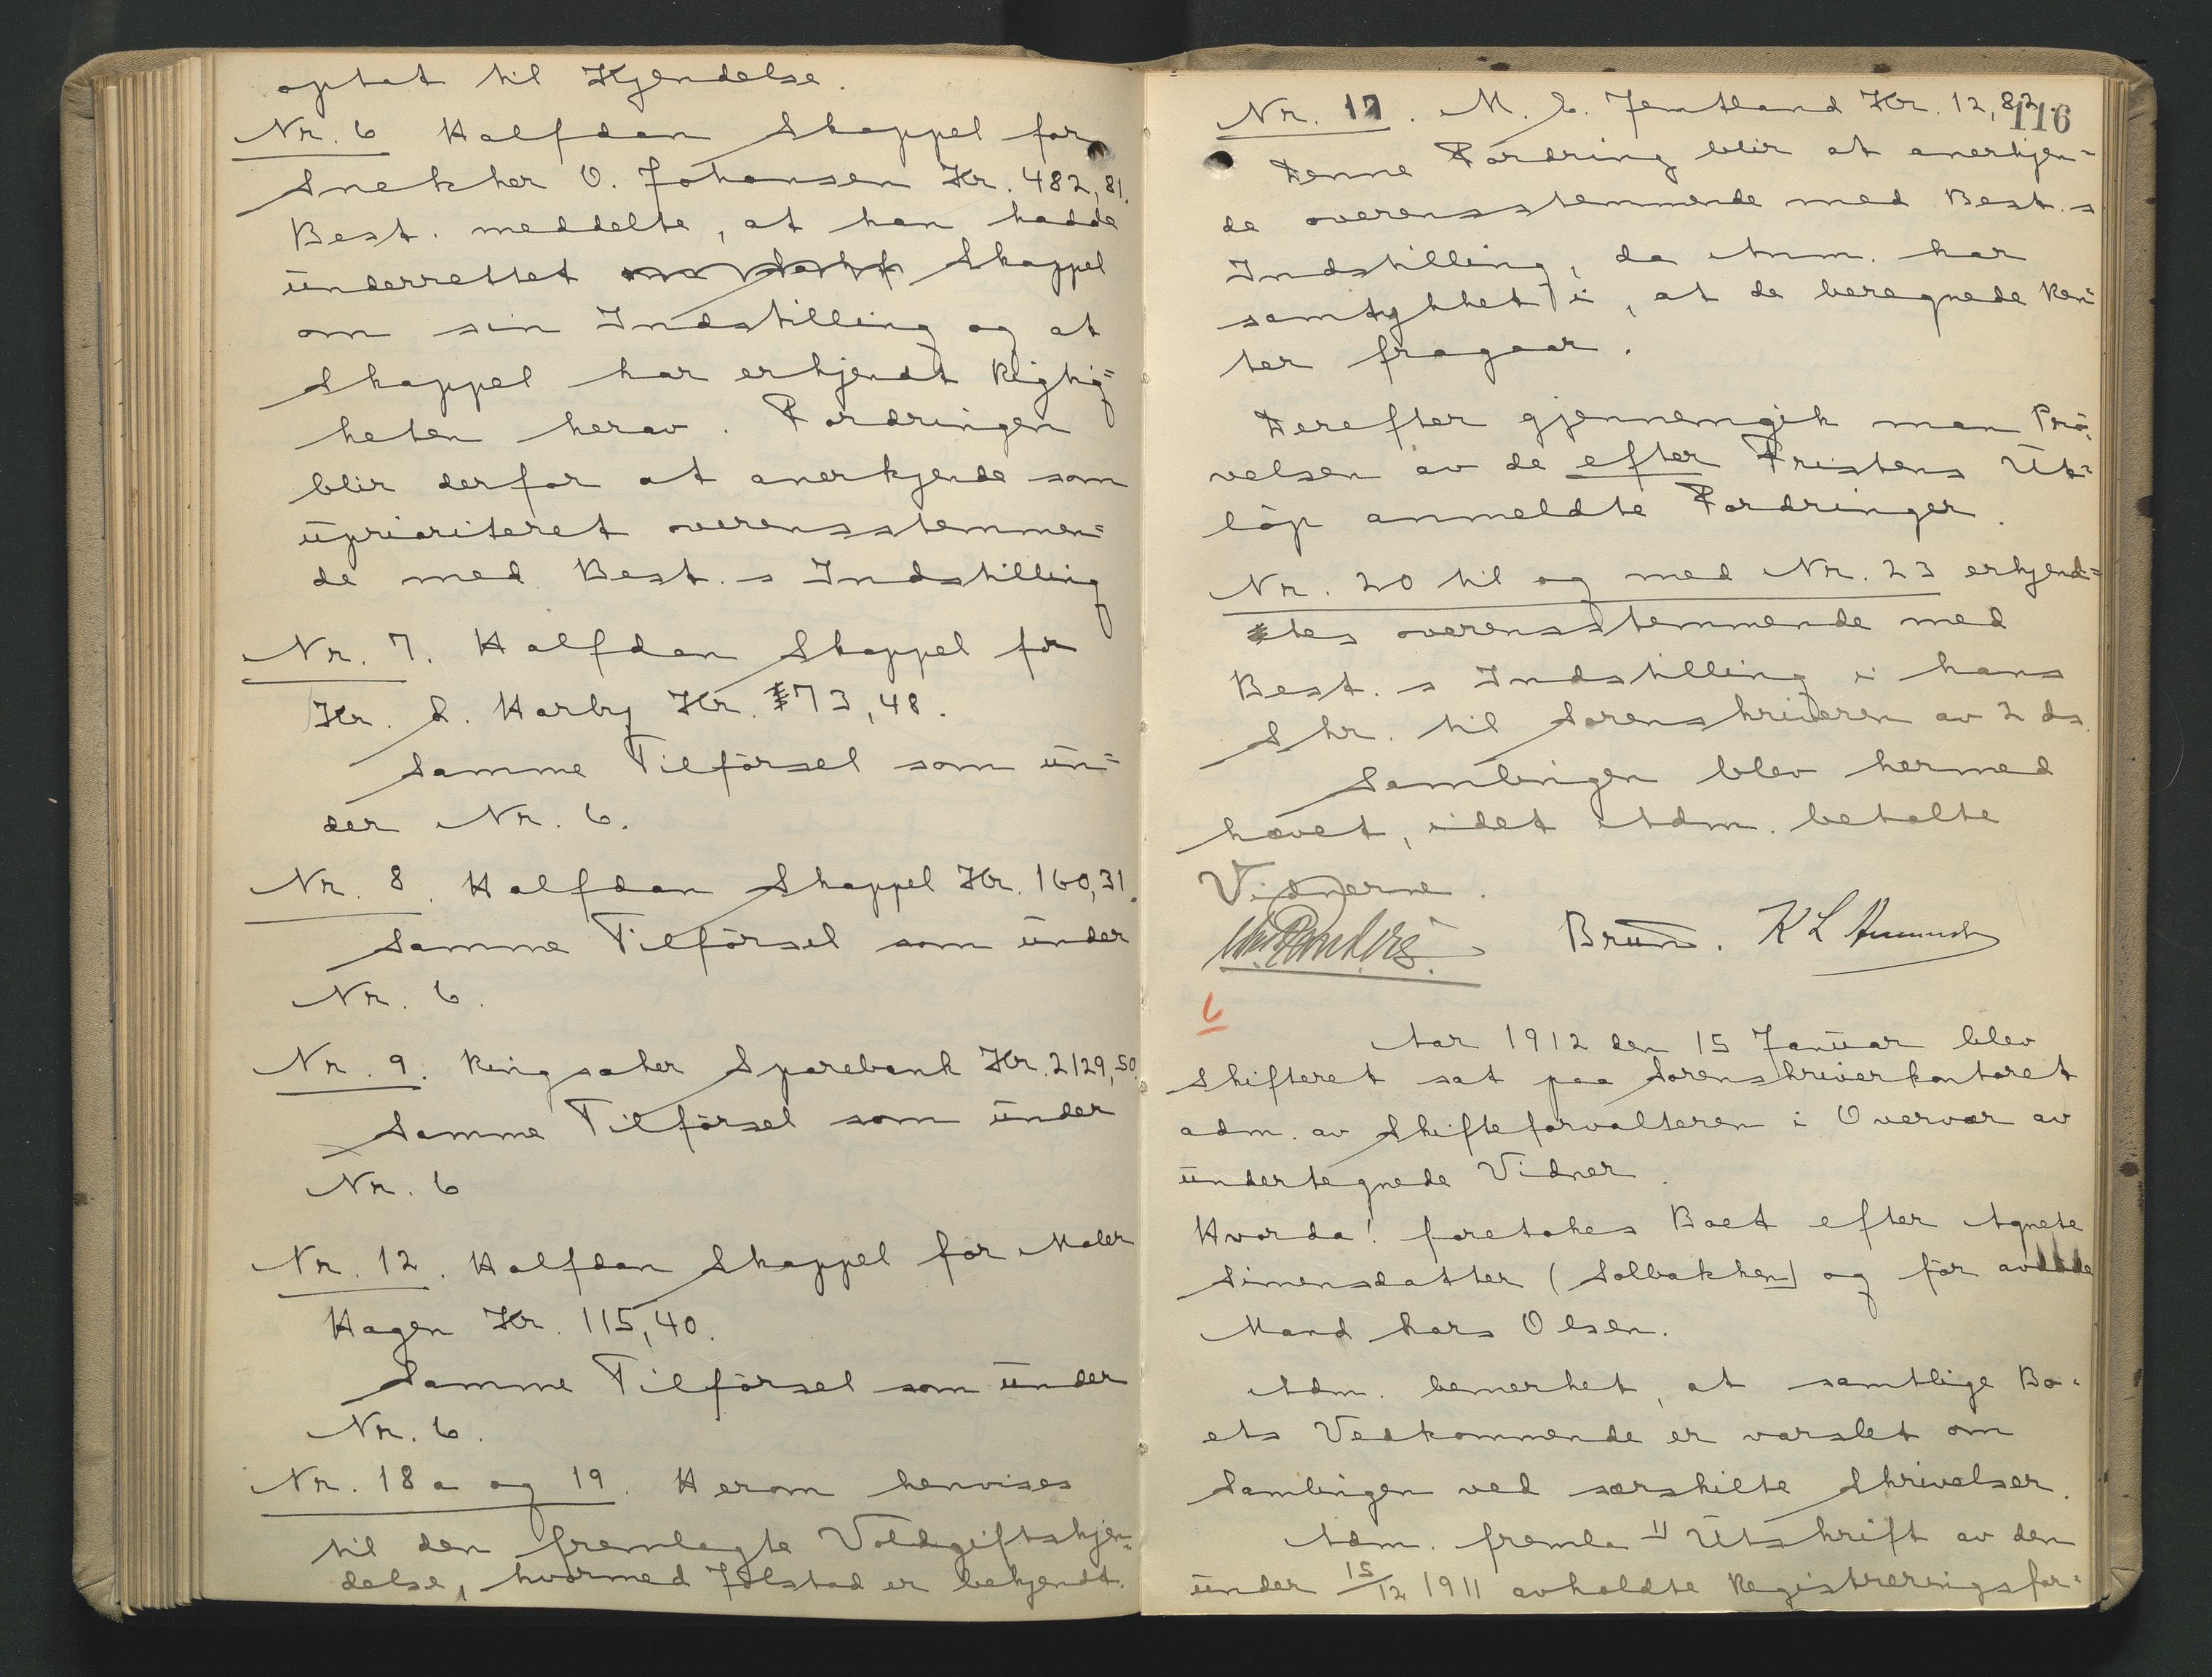 optat til Kjendelse.
Nr. 6 Halfdan Skappel for
Snekker O. Johansen Kr. 482,81.
Best. meddelte, at han hadde
underrettet Skappel
om sin Indstilling og at
Skappel har erkjendt Rigtig=
heten herav. Fordringen
blir derfor at anerkjende som
uprioriteret overensstemmen=
de med Best.s Indstilling
Nr. 7. Halfdan Skappel for
Kr. S. Harby Kr. 73,48.
Samme Tilførsel som un=
der Nr. 6.
Nr. 8. Halfdan Skappel Kr. 160,31.
Samme Tilførsel som under
Nr. 6.
Nr. 9. Ringsaker Sparebank Kr. 2129,50.
Samme Tilførsel som under
Nr. 6
Nr. 12. Halfdan Skappel for Maler
Hagen Kr. 115,40.
Samme Tilførsel som under
Nr. 6.
Nr. 18a og 19. Herom henvises
til den fremlagte Voldgiftskjen=
delse, hvormed Jølstad er bekjendt.
116
Nr. 17. M. C. Jemtland Kr. 12,82.
Denne Fordring blir at anerkjen=
de overensstemmende med Best.s
Indstilling, da Anm. har
samtykket i, at de beregnede Ren=
ter fragaar.
Derefter gjennemgik man Prø=
velsen av de efter Fristens Ut=
løp anmeldte Fordringer.
Nr. 20 til og med Nr. 23 erkjend=
tes overensstemmende med
Best.s Indstilling i hans
Skr. til Sorenskriveren av 2 ds.
Samlingen blev hermed
hævet, idet Adm. betalte
Vidnerne.
Bruun. K L
Aar 1912 den 15 Januar blev
Skifteret sat paa Sorenskriverkontoret
adm. av Skifteforvalteren i Overvær av
undertegnede Vidner.
Hvorda! foretokes Boet efter Agnete
Simensdatter (Solbakken) og før avdøde
Mand Lars Olsen.
Adm. bemerket, at samtlige Bo=
ets Vedkommende er varslet om
Samlingen ved særskilte Skrivelser.
Adm. fremla 1) Utskrift av den
under 15/12 1911 avholdte Registreringsfor=